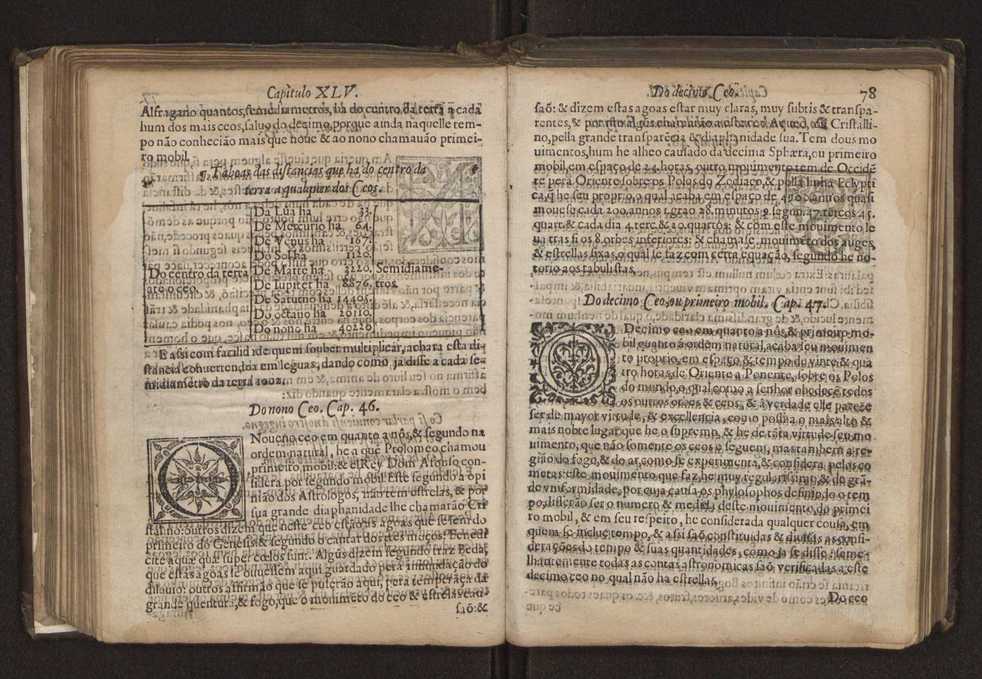 Capitulo XLV.
Alfragano quantos semidiametros, ha do centro da terra a cada
hum dos mais ceos, saluo do decimo, porque ainda naquelle tem-
po não conhecião mais que noue & ao nono chamauão primei-
ro mobil.
¶ Taboas das distancias que ha do centro da
terra a qualquer dos Ceos.
Do centro da terra
ate o o ceo
Da Lua ha 33.
De Mercurio ha 64.
De Venus ha 167.
Do Sol ha 1120.
De Marte ha 1220.
De Iupiter ha 8876.
De Saturno ha 14405.
Do octauo ha 20110.
Do nono ha 40220.
Semidiame-
tros
E assi com facilidade quem souber multiplicar, achara esta di-
stancia conuertendoa em leguas, dando como ja disse a cada se-
midiametro da terra 1002.
Do nono Ceo. Cap. 46.
O Noueno ceo em quanto a nós, & segundo na
ordem natural, he a que Ptolomeo chamou
primeiro mobil: & el Rey Dom Afonso con-
sidera por segundo mobil. Este segundo a opi
nião dos Astrologos, não tem estrelas, & por
sua grande diaphanidade lhe chamarão Cri
stalino: outros dizem que neste ceo estão as agoas que se lem do
primeiro do Genesis & segundo o cantar dos tres moços: Benedi
cite aquæ quæ super cœlos sunt. Algũs dizem segundo traz Beda,
que estas agoas se ouuessem aqui guardado pera inundação do
diluuio: outros afirmão que se puserão aqui, pera temperaça da
grande quentura, & fogo, que o mouimeto do ceo & estrelas cau-
saõ: &
Do decimo Ceo. 78
saõ: & dizem estas agoas estar muy claras, muy subtis & transpa-
rentes, & por isto algũs chamarão a este ceo Aqueo, ou Cristalli-
no, pella grande transparẽcia & diaphanidade sua. Tem dous mo
uimentos, hum he alheo causado da decima Sphæra, ou primeiro
mobil, em espaço de 24. horas, outro mouimento tem de Occidẽ
te pera Oriente sobre os Polos do Zodiaco, & pella linha Eclypti
ca, q̃ he seu proprio, o qual acaba em espaço de 49000 annos quasi
mouese cada 200. annos 1. grao 28. minutos 9. segun. 47. terços 45.
quart. & cada dia 4. terc. & 20. quartos: & com este mouimento le
ua tras si os 8. orbes inferiores: & chamase mouimẽto dos auges,
& estrellas fixas, o qual se faz com certa equação, segundo he no-
torio aos tabulistas.
Do decimo Ceo, ou primeiro mobil. Cap. 47.
O Decimo ceo em quanto a nós, & primeiro mo-
bil quanto à ordem natural, acaba seu mouimen
to proprio, em espaço & tempo de vinte & qua
tro horas de Oriente a Ponente, sobre os Polos
do mundo, o qual como a senhor obedecẽ todos
os outros orbes & ceos, & à verdade elle parece
ser de mayor virtude, & excellencia, como posto o mais alto &
mais nobre lugar que he o supremo, & he de tãta virtude seu mo
uimento, que não somente os ceos o seguem, mas tambem a re-
gião do fogo, & do ar, como se experimenta, & considera pelas co
metas: este mouimento que faz, he muy regularissimo, & de grã-
de vniformidade, por cuja causa os phylosophos definindo o tem
po, disserão ser o numero & medida deste mouimento do primei
ro mobil, & em seu respeito, he considerada qualquer cousa, em
quem se inclue tempo, & assi saõ constituidas & diuisas as consi-
derações do tempo & suas quantidades, como ja se disse: & seme-
lhantemente todas as contas astronomicas saõ verificadas a este
decimo ceo no qual não ha estrellas.
Do ceo